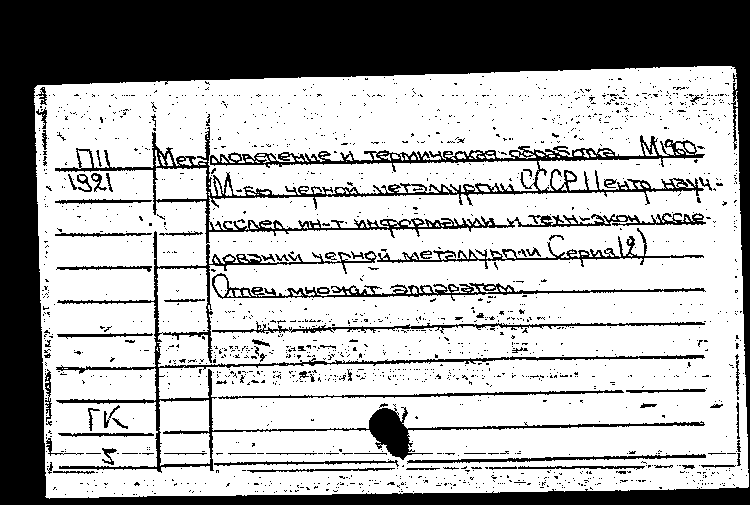 ПII Металловедение и термическая обработка М 1960-
1921 (М-во черной металлургии СССР Центр науч.-
исслед. ин-т информации и техн-экон. иссле-
дований черной металлургии Серия 12)
Отпеч. множит. аппаратом.
ГК